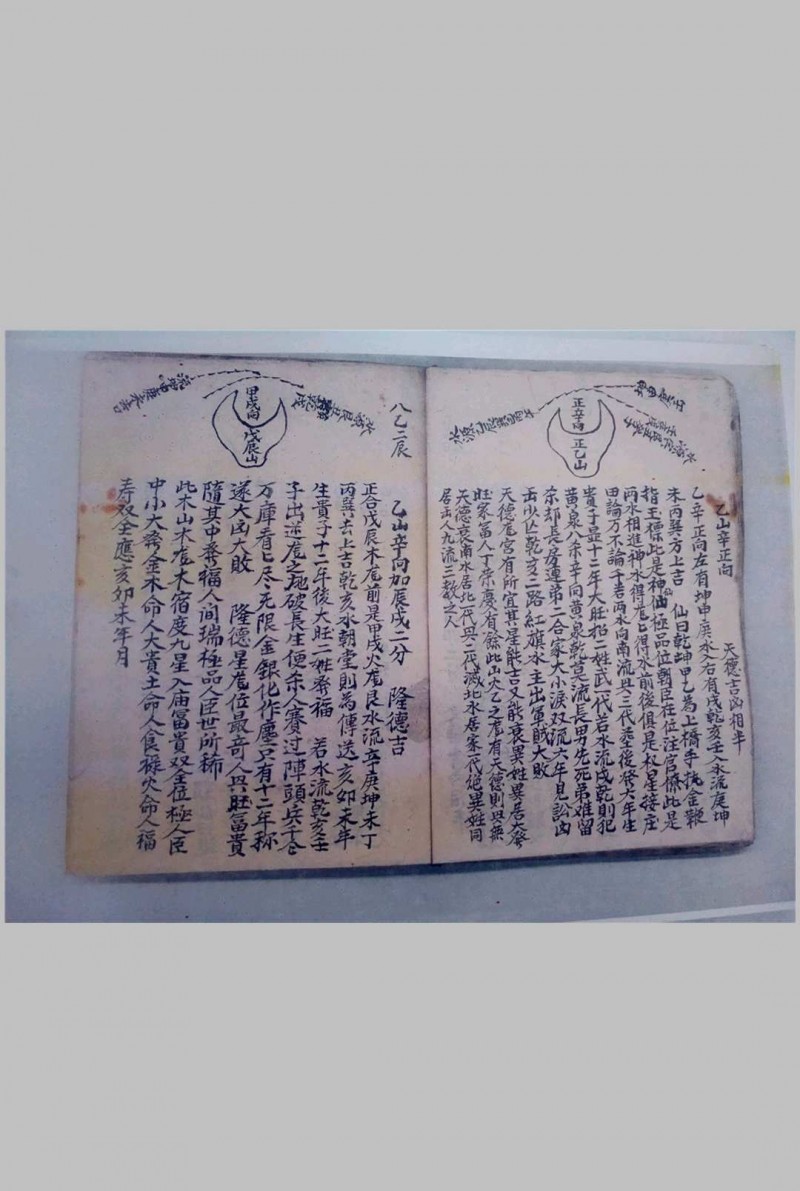 乙山辛正向
天德吉凶相半
乙辛正向左有坤申庚水入右有戌乾亥壬入水流庚坤
未丙巽方上吉 仙曰乾坤甲乙為上橋手執金鞭
指玉標此是神仙極品位朝臣在位注官僚此是
两水相進神水得卮七得水前後俱是权星接庄
田論万不論千若两水向南流興三代差後發六年生
貴子显十二年大旺招二姓武一代若水流戌乾則犯
黄泉八杀辛向黄泉乾莫流長男先死弟难留
杀却長房連弟二合家大小淚双流六年見訟凶
缶少亾乾亥二路紅旗水主出軍賊大敗
天德卮宮有所宜其星能吉又能衰異姓異居大發
旺家富人丁荣慶有餘此山火乙之卮有天德則興無
天德衰南水居北一代興二代滅北水居寨一代絕異姓同
居出人九流三教之人
正辛向
正乙山
八乙二辰
乙山辛向加辰戌二分 隆德吉
正合戊辰木卮前是甲戌火卮艮水流辛庚坤未丁
丙巽去上吉乾亥水朝堂則為傳送亥卯未年
生貴子十二年後大旺二姓發福 若水流乾亥壬
子出逆卮之地破長生便杀人賽过陣頭兵千仓
万庫看已尽无限金銀化作塵只有十二年称
遂大凶大敗 隆德星卮位最奇人興旺富貴
隨其中發福人间瑞極品人臣世所稀
此木山木卮木宿度九星入庙富貴双全位極人臣
中小大發金木命人大貴土命人食祿火命人福
寿双全應亥卯未年月
甲戌向
戊辰山